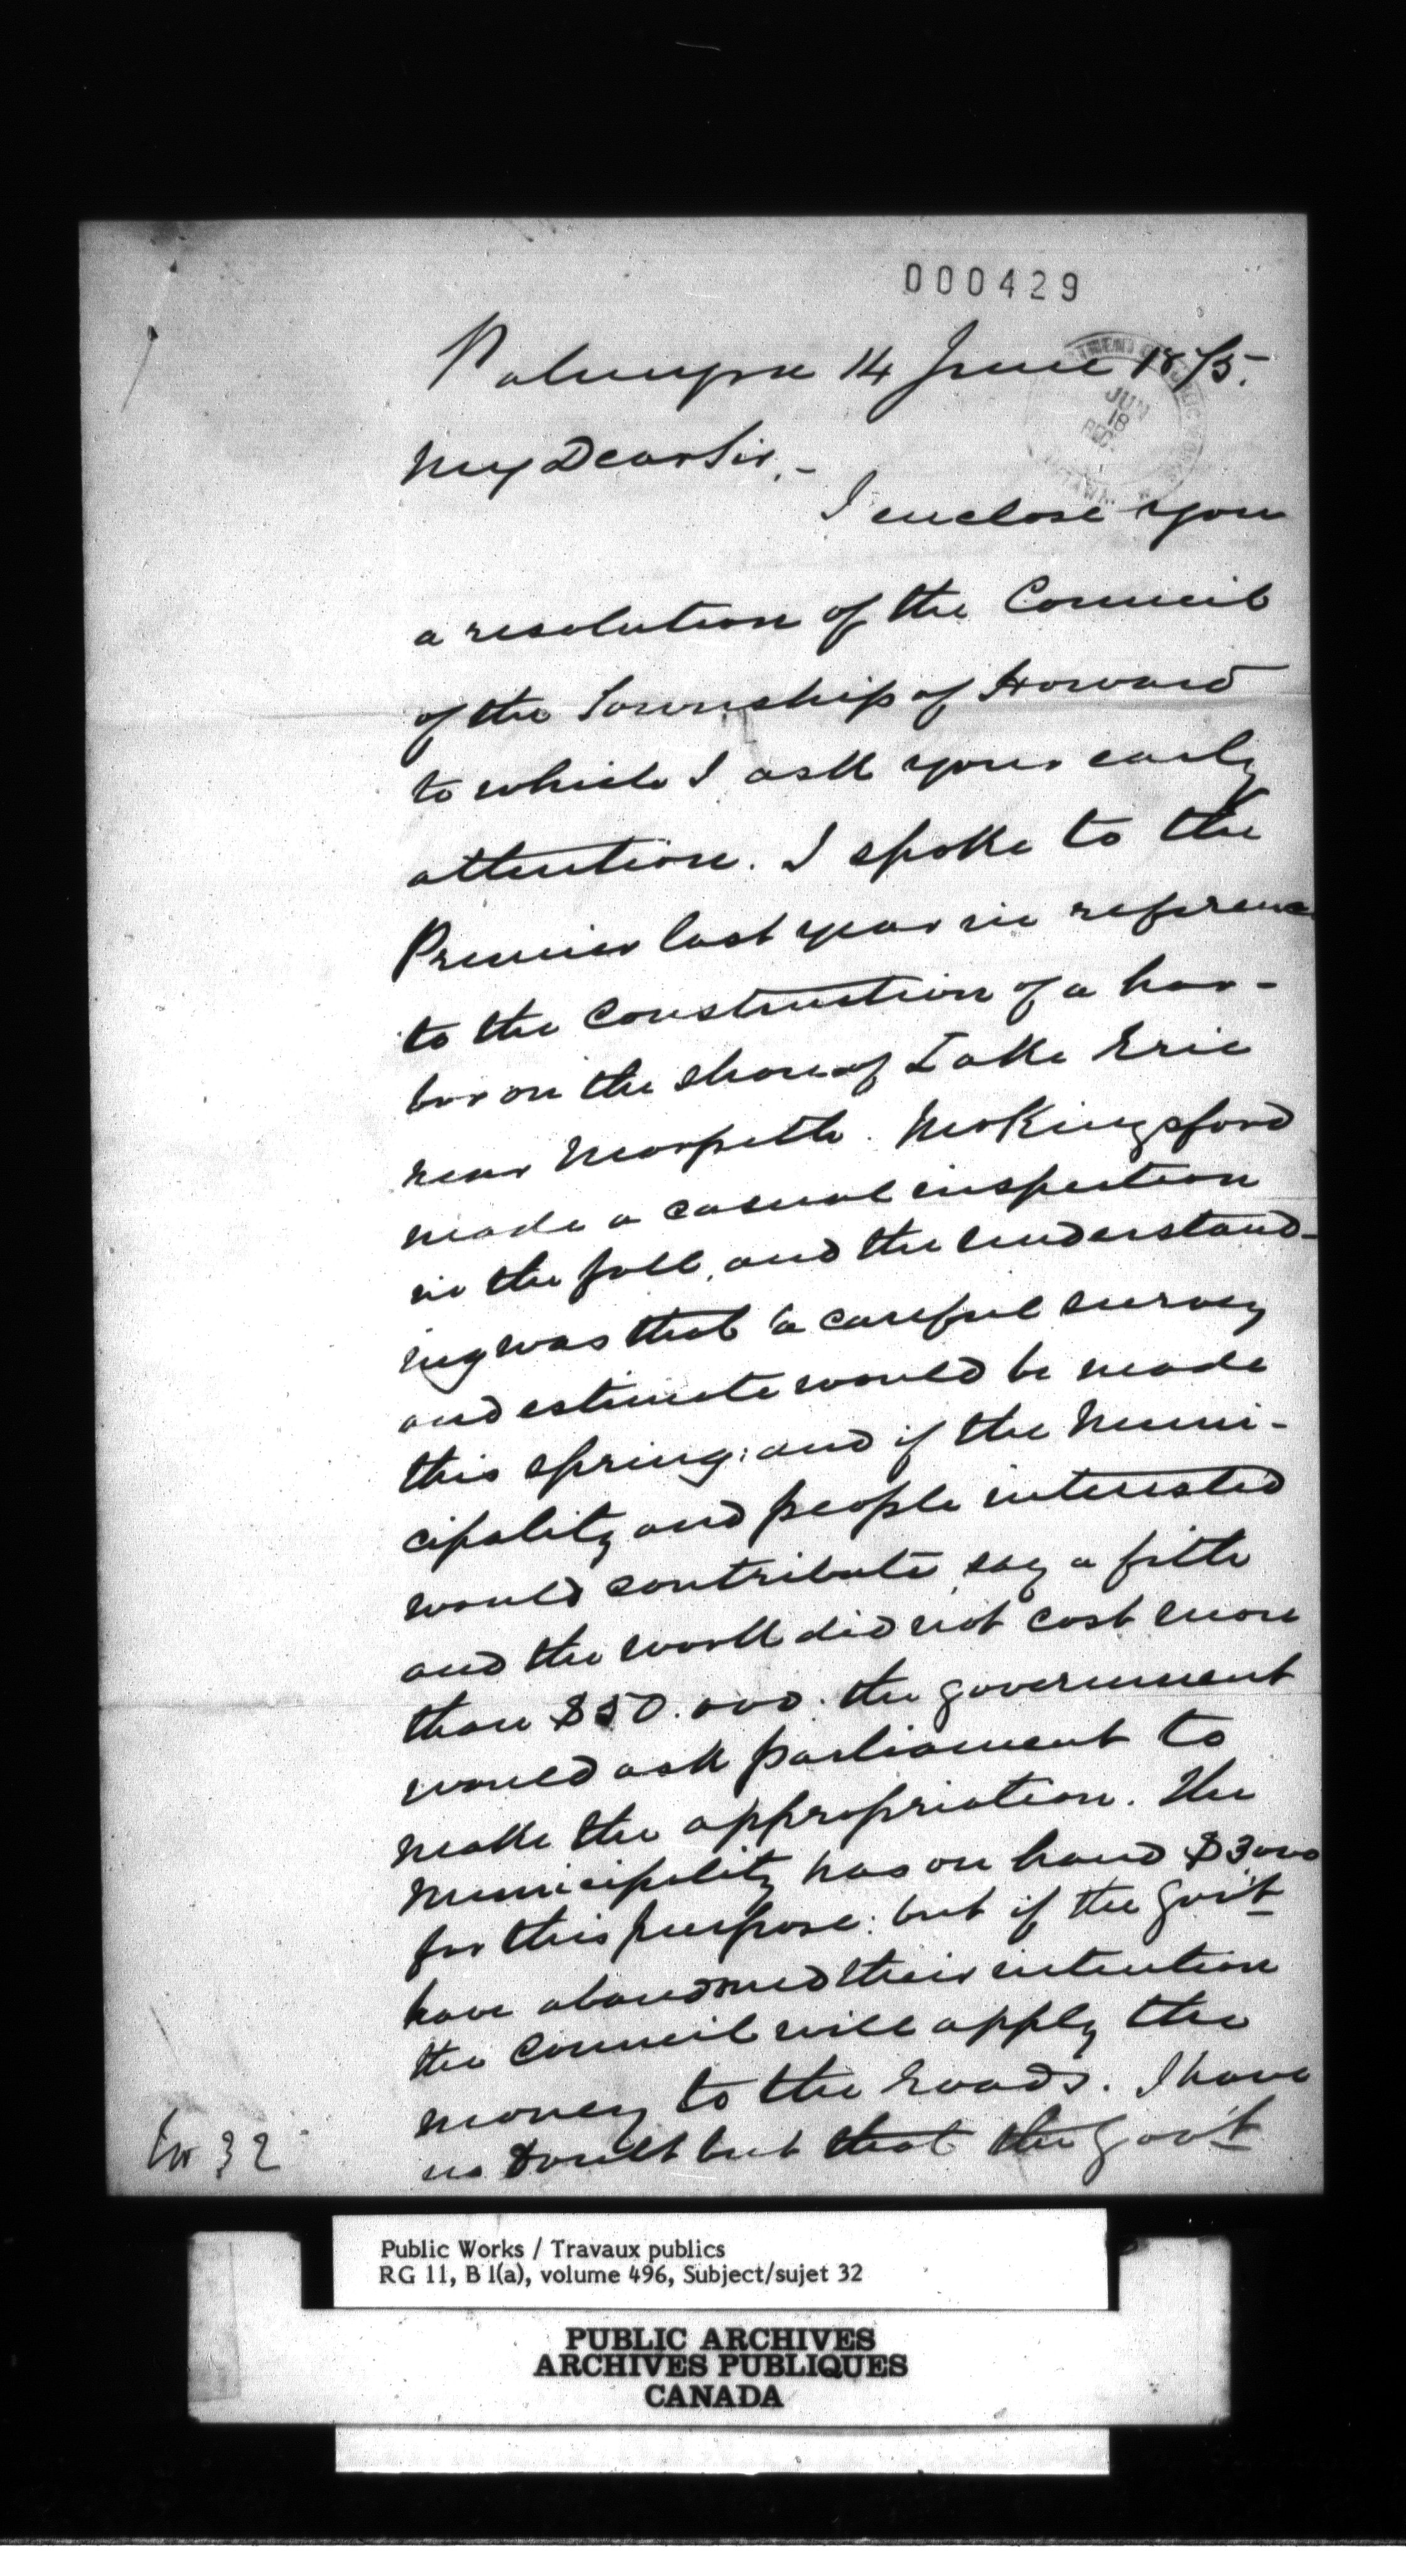 000429
Palmyra 14 June 1875.
DEPARTMENT OF PUBLIC WORKS
JUN
18
REC.
OTTAWA
My Dear Sir,-
I enclose you
a resolution of the Council
of the Township of Howard
to which I ask your early
attention. I spoke to the
Premier last year in reference
to the construction of a har-
bor on the shore of Lake Erie
near Morpeth. Mr Kingsford
made a casual inspection
in the fall, and the understand-
ing was that a careful survey
and estimate would be made
this spring: and if the Muni-
cipality and people interested
would contribute say a fifth
and the work did not cost more
than $50.000. the government
would ask parliament to
make the appropriation. The
Municipality has on hand $3000
for this purpose: but if the Gov't
have abandoned their intention
the Council will apply the
money to the roads. I have
no doubt but that the Gov't
32
Public Works / Travaux publics
RG 11, B1(a), volume 496, Subject/sujet 32
PUBLIC ARCHIVES
ARCHIVES PUBLIQUES
CANADA